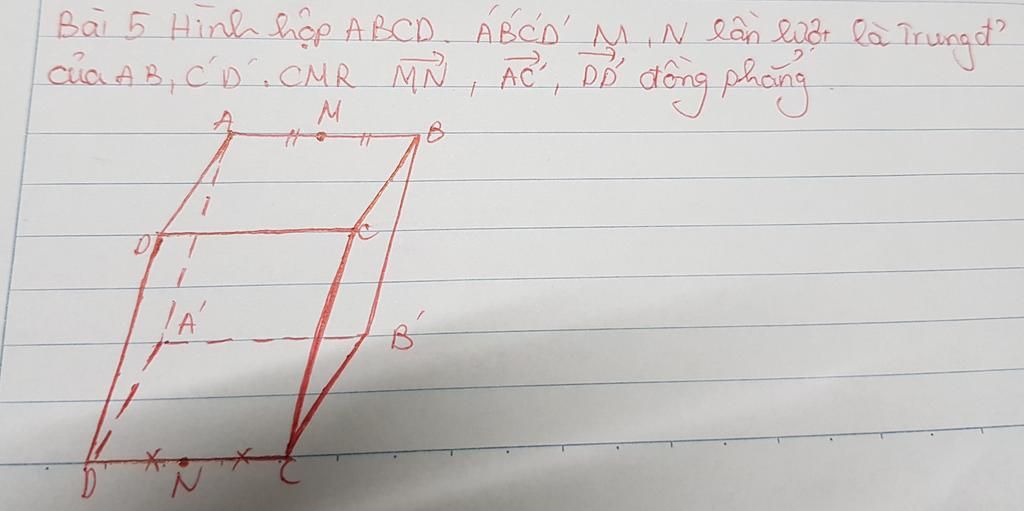 Bài 5 Hình hộp ABCD. A'B'C'D' M, N lần lượt là Trung đ'
của AB, C'D'. CMR MN, AC', DD' đồng phẳng
A M B
D C
A' B'
D N C